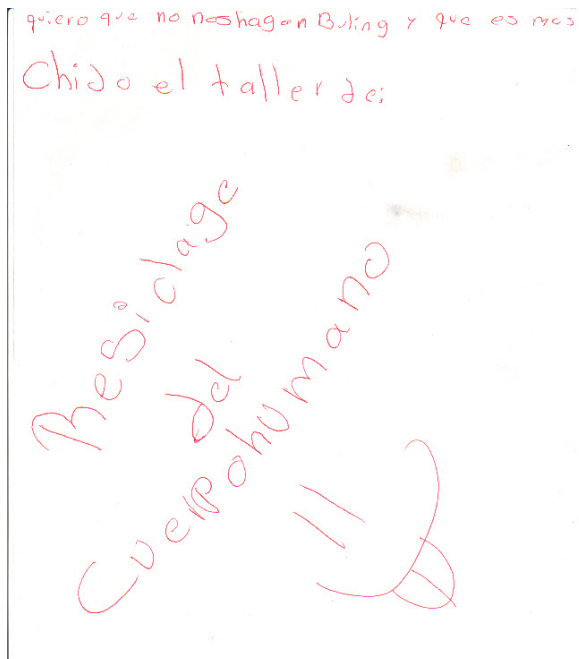 quiero que no noshagan Buling y que es mas
Chido el taller de:
Resiclage
del
Cuerpohumano